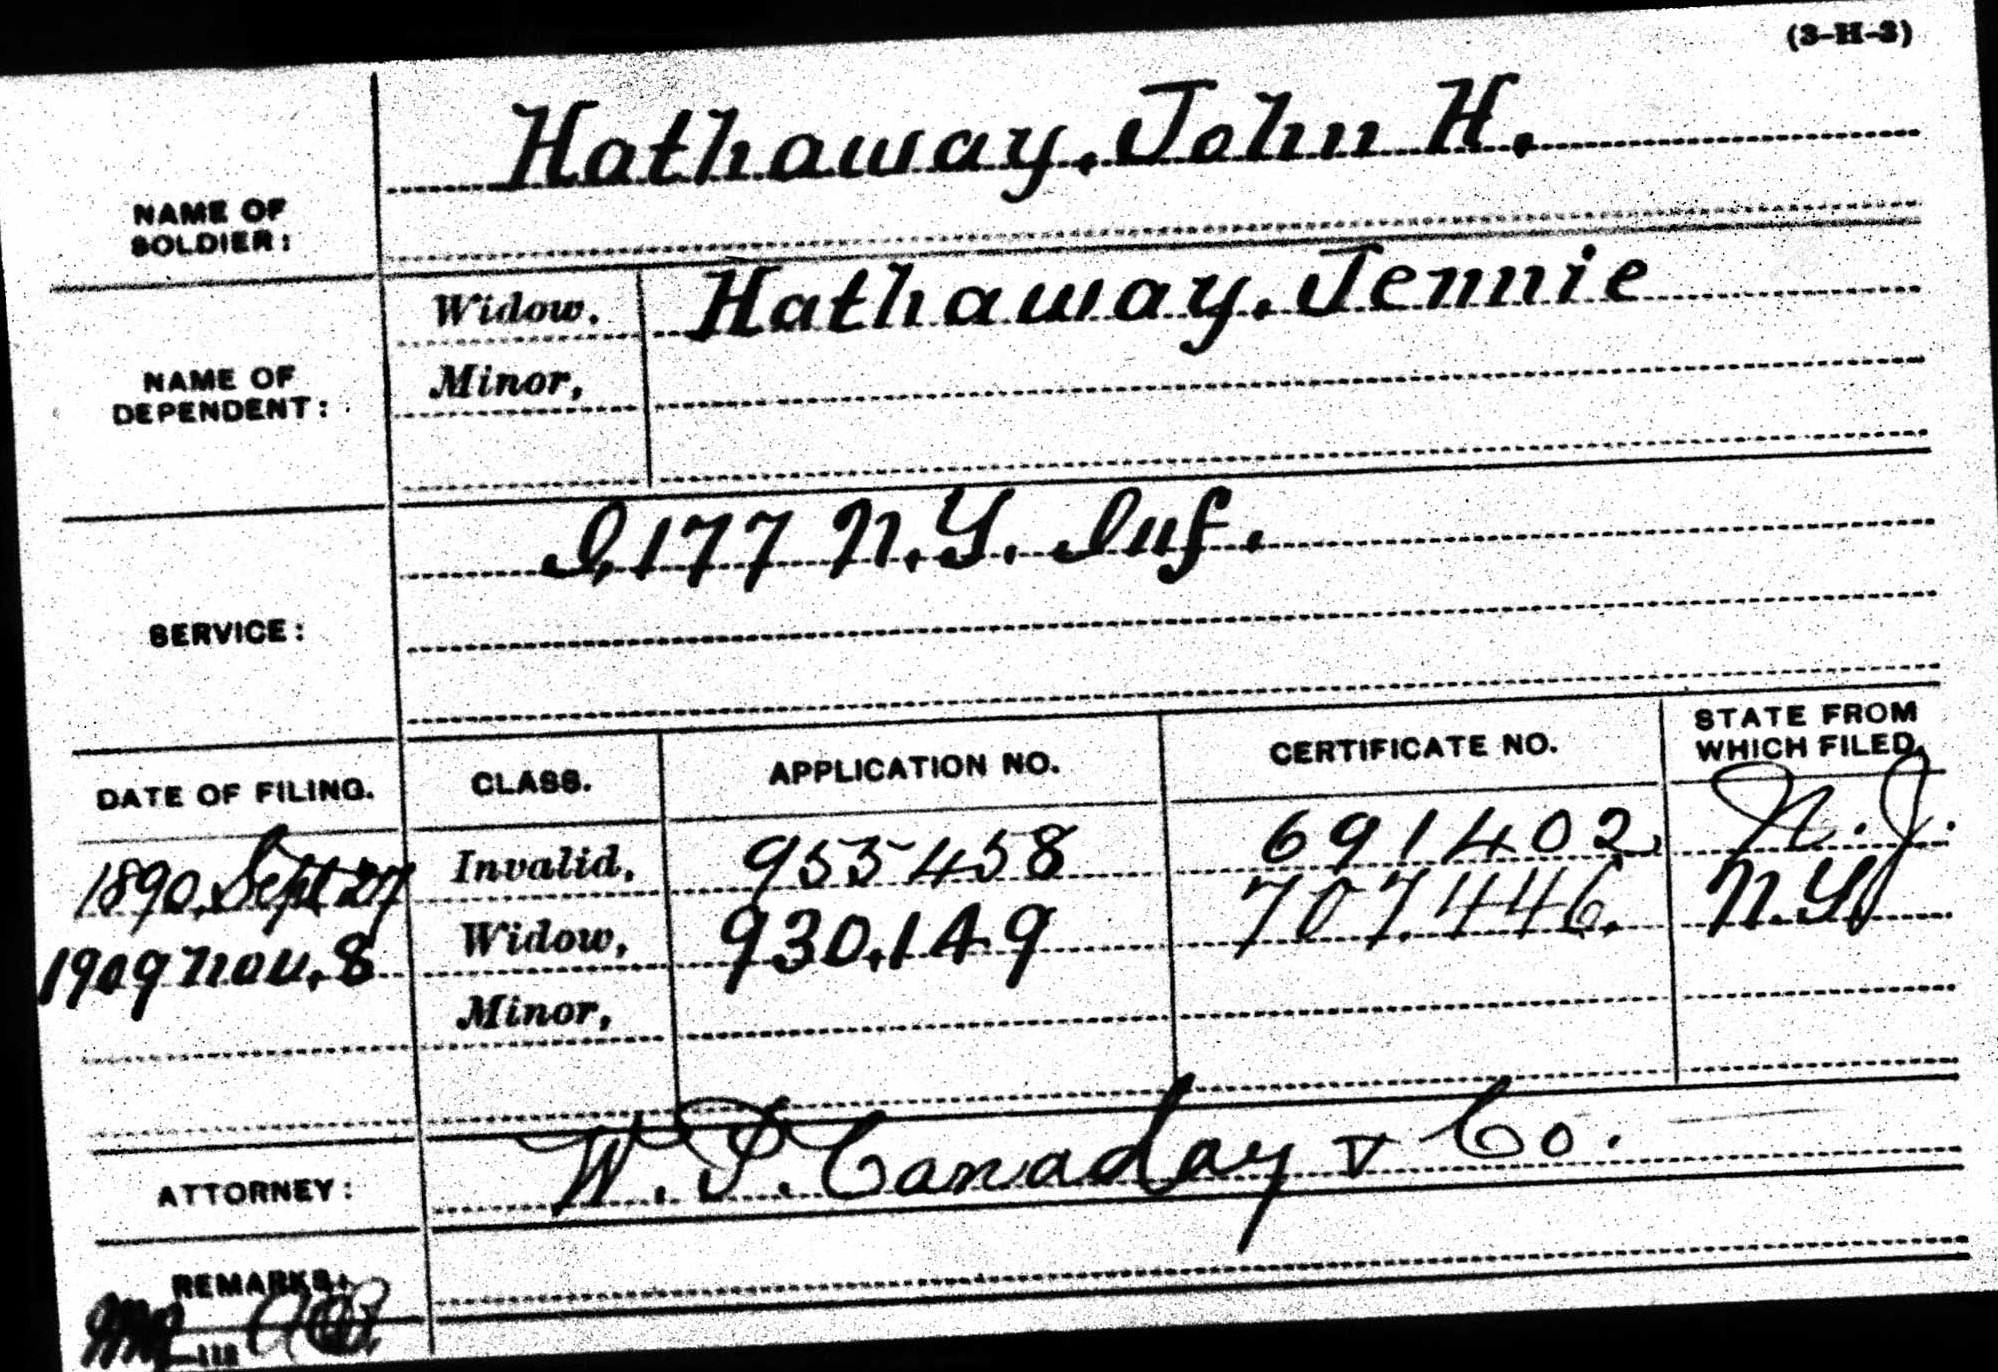 (3-H-3)
Hathaway, John H.
NAME OF
SOLDIER:
Widow, Hathaway, Jennie
Minor,
NAME OF
DEPENDENT:
I, 177 N.Y. Inf.
SERVICE:
DATE OF FILING. CLASS. APPLICATION NO. CERTIFICATE NO. STATE FROM WHICH FILED.
1890, Sept 27 Invalid, 953458 691402, N.J.
1909 Nov. 8 Widow, 930,149 707,446. N.Y.
Minor,
ATTORNEY: W. P. Canaday & Co.
REMARKS: